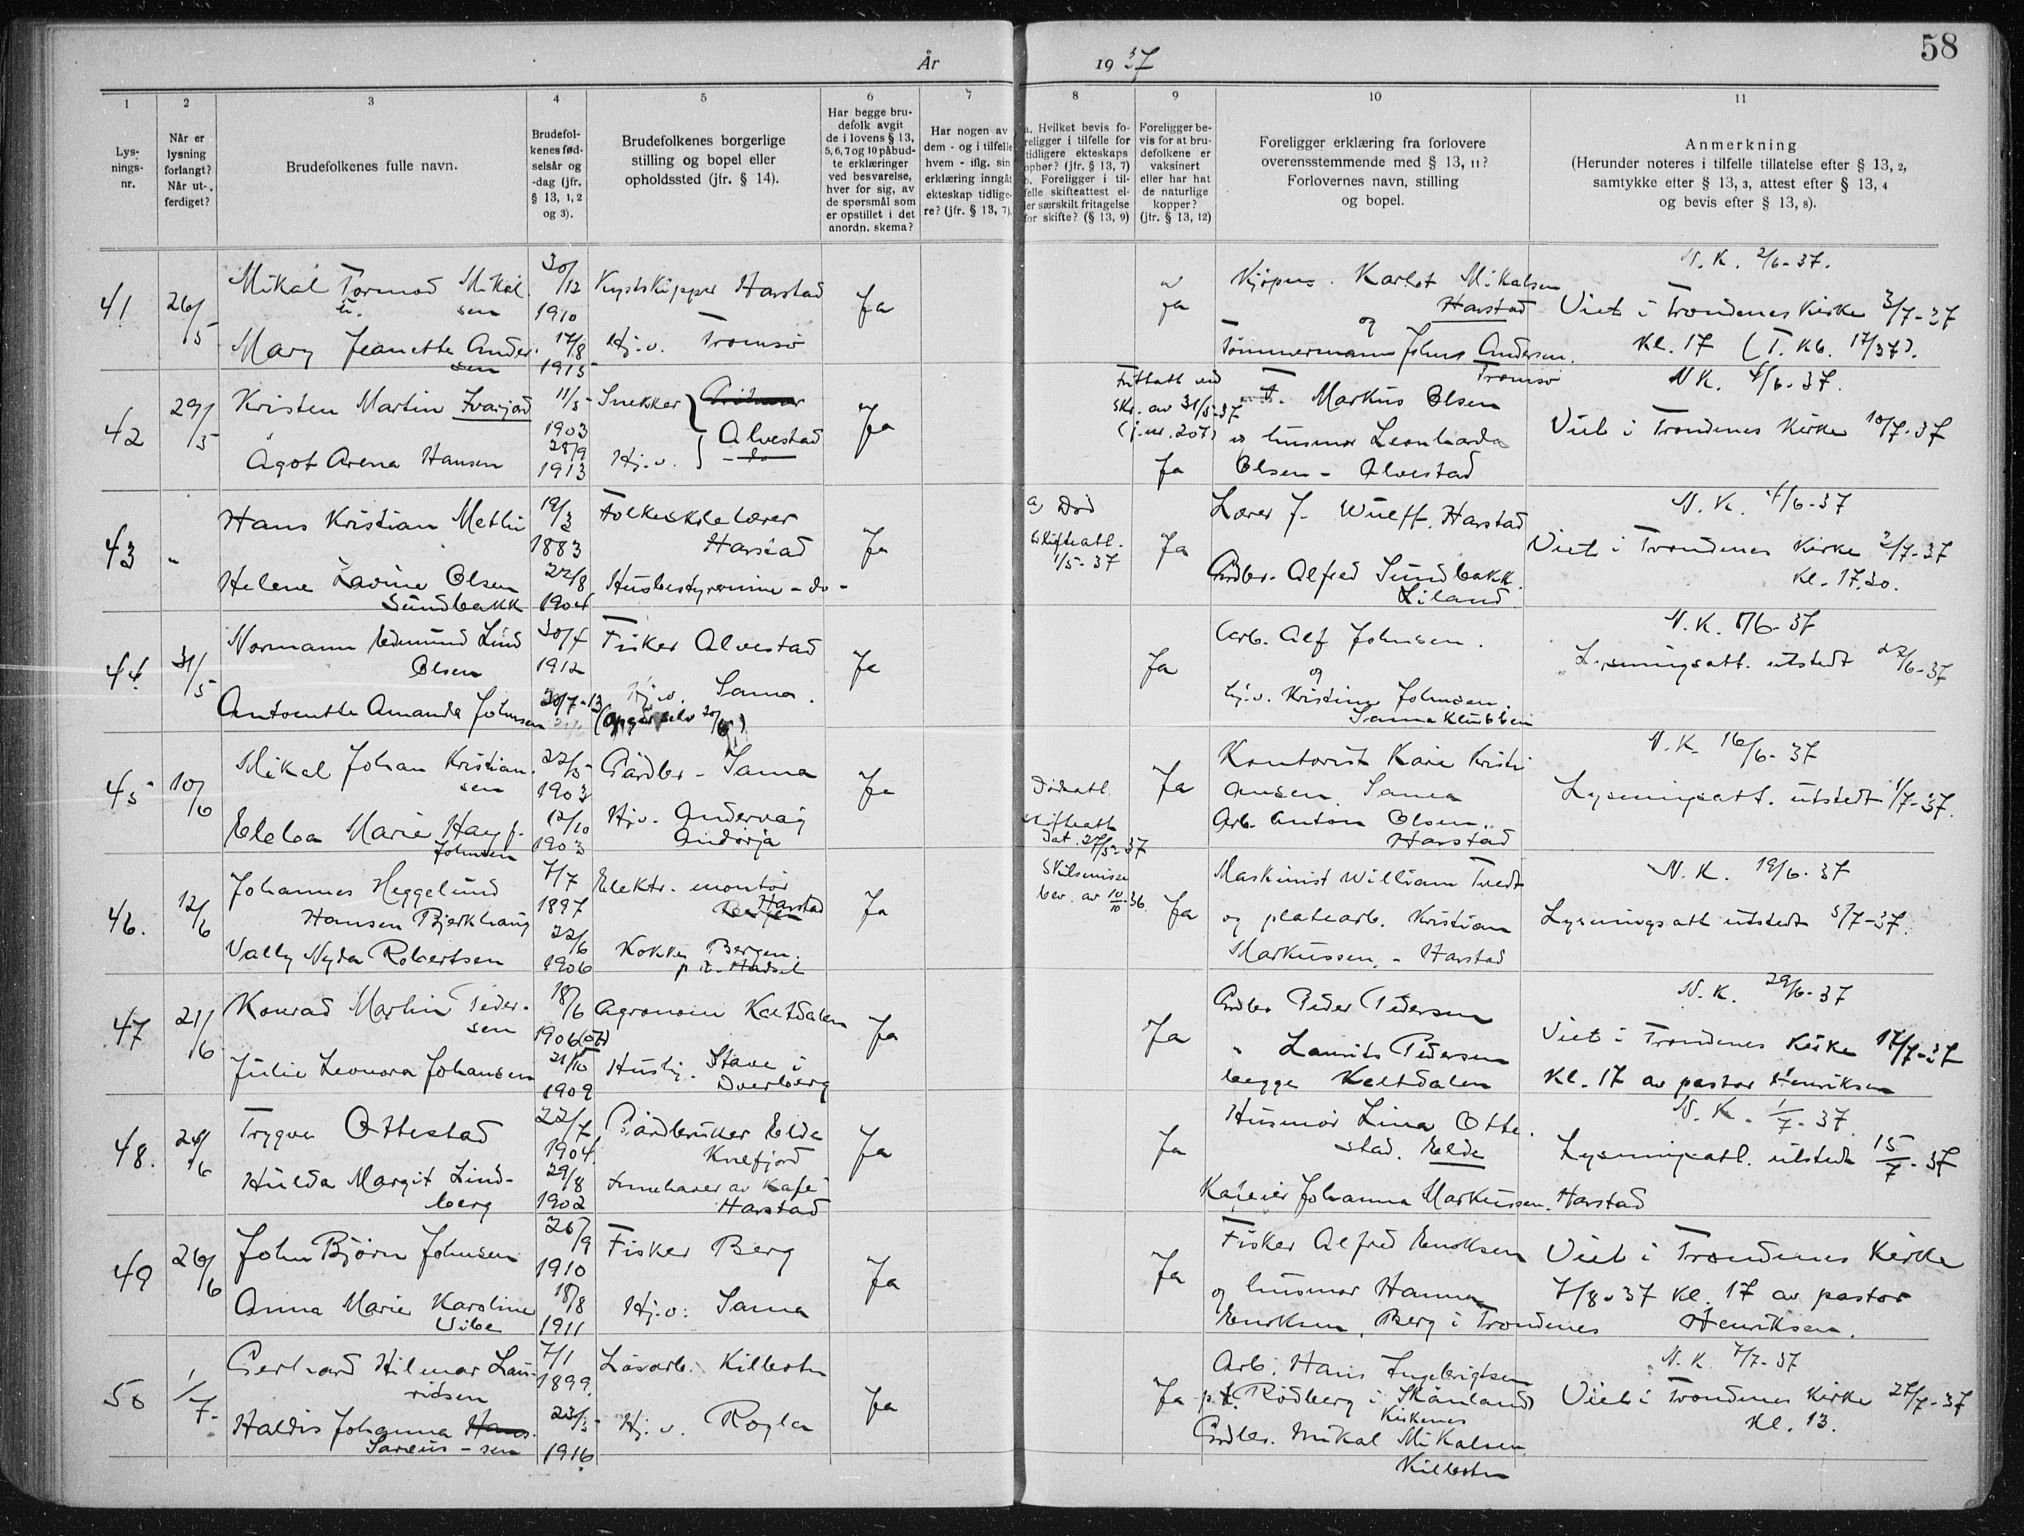 58
År 1937
1 2 3 4 5 6 7 8 9 10 11
Lys-
nings-
nr.
Når er
lysning
forlangt?
Når ut-
ferdiget?
Brudefolkenes fulle navn.
Brudefol-
kenes fød-
selsår og
-dag (jfr.
§ 13, 1, 2
og 3).
Brudefolkenes borgerlige
stilling og bopel eller
opholdssted (jfr. § 14).
Har begge bru-
defolk avgit
de i lovens § 13,
5, 6, 7 og 10 påbud-
te erklæringer
ved besvarelse,
hver for sig, av
de spørsmål som
er opstillet i det
anordn. skema?
Har nogen av
dem - og i tilfelle
hvem - iflg. sin
erklæring inngåt
ekteskap tidlige-
re? (jfr. § 13, 7)
a. Hvilket bevis fo-
religger i tilfelle for
tidligere ekteskaps
ophør? (jfr. § 13, 7)
b. Foreligger i til-
felle skifteattest el-
ler særskilt fritagelse
for skifte? (§ 13, 9)
Foreligger be-
vis for at bru-
defolkene er
vaksinert
eller har hat
de naturlige
kopper?
(jfr. § 13, 12)
Foreligger erklæring fra forlovere
overensstemmende med § 13, 11?
Forlovernes navn, stilling
og bopel.
Anmerkning
(Herunder noteres i tilfelle tillatelse efter § 13, 2,
samtykke efter § 13, 3, attest efter § 13, 4
og bevis efter § 13, 8).
41 26/5
Mikal Tormod Mikal-
sen
30/12
1910
Kystskipper Harstad
Mary Jeanette Ander-
sen
17/8
1915
Hj.v. Tromsø
Ja
Ja
Karlot Mikalsen
Harstad
og
Tømmermann Johns Andersen.
Tromsø
N.K. 2/6-37.
Viet i Trondenes Kirke 3/7-37
Kl. 17 (T. Kb. 17/37).
42 29/5
Kristen Martin
11/5
1903
Snekker
Alvestad
Ågot Arena Hansen
28/9
1913
Hj.v. - do -
Ja
skr. av 31/5-37
(j.nr. 207)
Ja
F. Markus Olsen
husmor Leonharda
Olsen - Alvestad
N.K. 4/6-37.
Viet i Trondenes Kirke 10/7-37
43 -
Hans Kristian Metli
19/3
1883
Folkeskolelærer
Harstad
Helene Lavine Olsen
Sundbakk
22/8
1904
Husbestyrerinne - do -
Ja
a) Død
b) Skifteatt.
1/5-37
Ja
Lærer J. Wulff. Harstad
Gårdbr. Alfred Sundbakk.
Liland.
N.K. 4/6-37
Viet i Trondenes Kirke 2/7-37
Kl. 17.30.
44. 31/5
Normann Edmund Lind
Olsen
30/4
1912
Fisker Alvestad
Antonette Amanda Johnsen
20/7-13
Hj.v. Sama.
Ja
Ja
Arb. Alf Johnsen.
og
hj.v. Kristine Johnsen.
Sama Klubben
N.K. 8/6-37
Lysningsatt. utstedt 22/6-37
45 10/6
Mikal Johan Kristian-
sen
22/5
1903
Gårdbr. - Sama
Marie Hay f.
Johnsen
12/10
1903
Hj.v. Andervåg
Andørja
Ja
Dødsatt.
Skifteatt.
dat. 27/5-37
Ja
Kontorist Kåre Kristi
ansen. Sama
Arb. Anton Olsen,
Harstad
N.K. 16/6-37
Lysningsatt. utstedt 1/7-37.
46. 12/6
Johannes Heggelund
Hansen Bjerkhaug
7/7
1897
Elektr. montør
Harstad
Bergen
Vally Nyda Robertsen
22/6
1906
Kokke Bergen.
p.t. Hadsel
Ja
Skilsmisse
bev. av 10/10-36.
Ja
Maskinist William Tvedt
og platearb. Kristian
Markussen. - Harstad
N.K. 19/6-37
Lysningsatt utstedt 5/7-37.
47 21/6
Konrad Martin Peder-
sen
18/6
1906(07)
Agronom Keldalen
Julie Leonora Johansen
21/10
1909
Hushj. Stave i
Dverberg
Ja
Ja
Gårdbr Peder Pedersen
" Laurits Pedersen
begge Keldalen
N.K. 29/6-37
Viet i Trondenes Kirke 17/7-37
Kl. 17 av pastor Henriksen
48. 26/6
Trygve Ottestad
22/7
1904.
Gårdbruker Elde
Kvefjord
Hulda Margit Lind-
berg
29/8
1902
Innehaver av Kafe
Harstad
Ja
Ja
Husmor Lina Otte-
stad. Elde
Johanna Markussen. Harstad
N.K. 1/7-37.
Lysningsatt. utstedt 15/7-37
49 26/6
John Bjørn Johnsen
26/9
1910
Fisker Berg
Anna Marie Karoline
Vibe
18/8
1911
Hj.v. Sama
Ja
Ja
Fisker Alfred Enoksen
og husmor Hanna
Enoksen, Berg i Trondenes
Viet i Trondenes Kirke
7/8-37 Kl. 17 av pastor
Henriksen.
50 1/7-
Gerhard Hilmar Lau-
ridsen
7/1
1899.
Løsarb. Killestn
Haldis Johanna Hans-
Sareus-sen
23/5
1916
Hj.v. Rogla
Ja
Ja
Arb. Hans Ingebrigtsen
p.t. Rødberg i Skånland
Gårdbr. Mikal Mikalsen
Killestn
N.K. 7/7-37
Viet i Trondenes Kirke 27/7-37
Kl. 13.